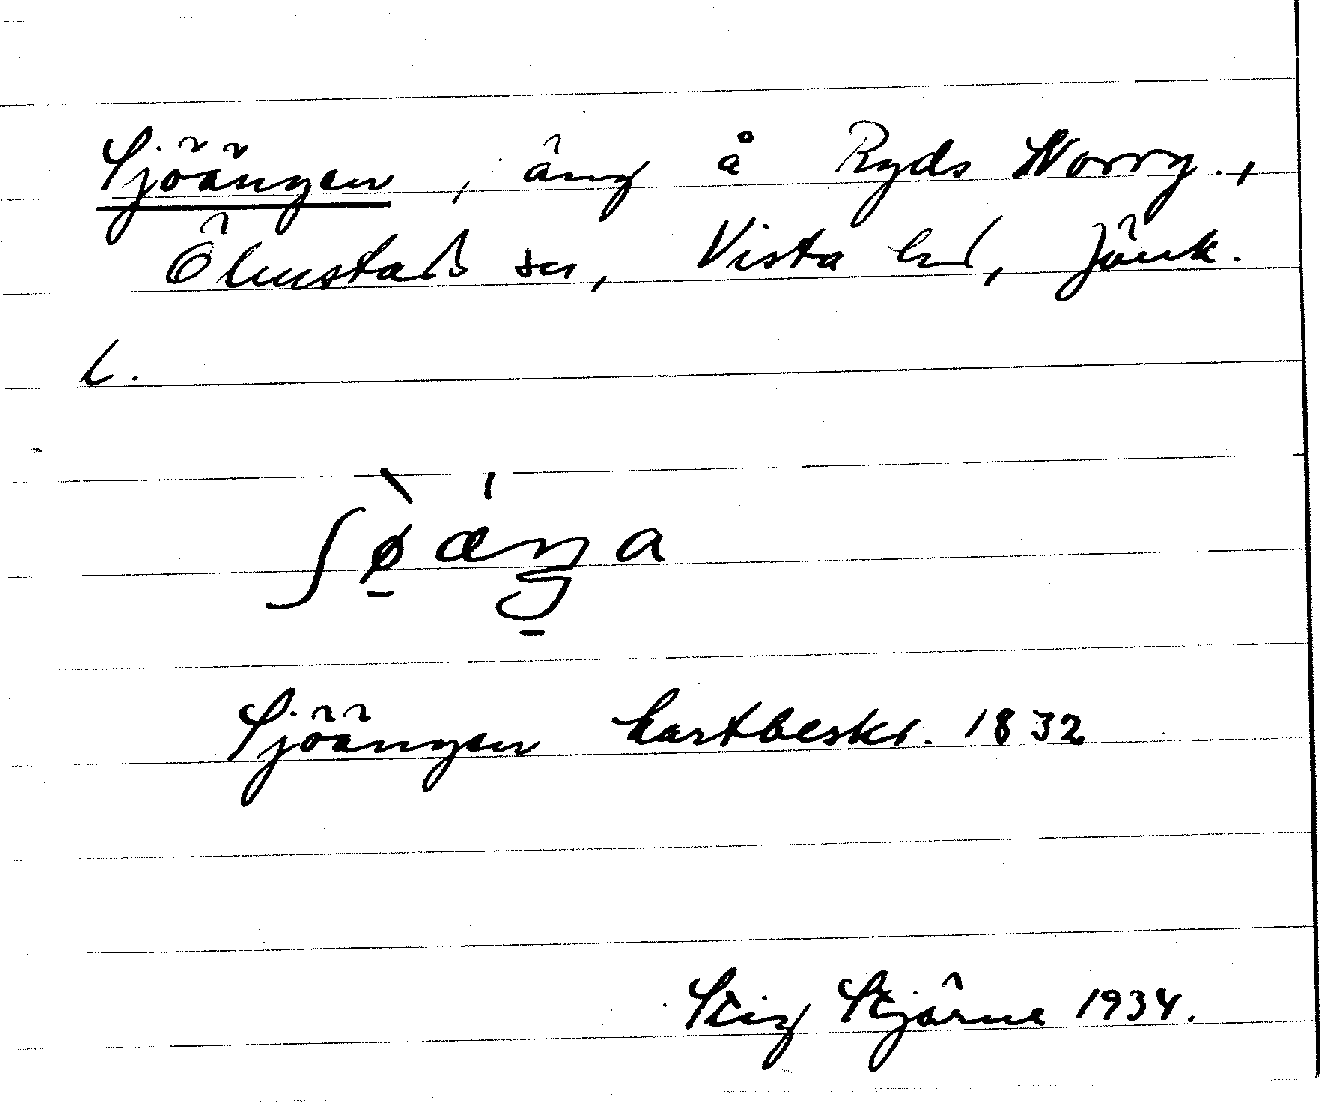 Sjöängen, äng å Ryds Norrg.,
Ölmstads sn, Vista hd, Jönk.
l.
ʃø̠̀ǽŋ̠a
Sjöängen kartbeskr. 1832
Stig Stjärne 1934.